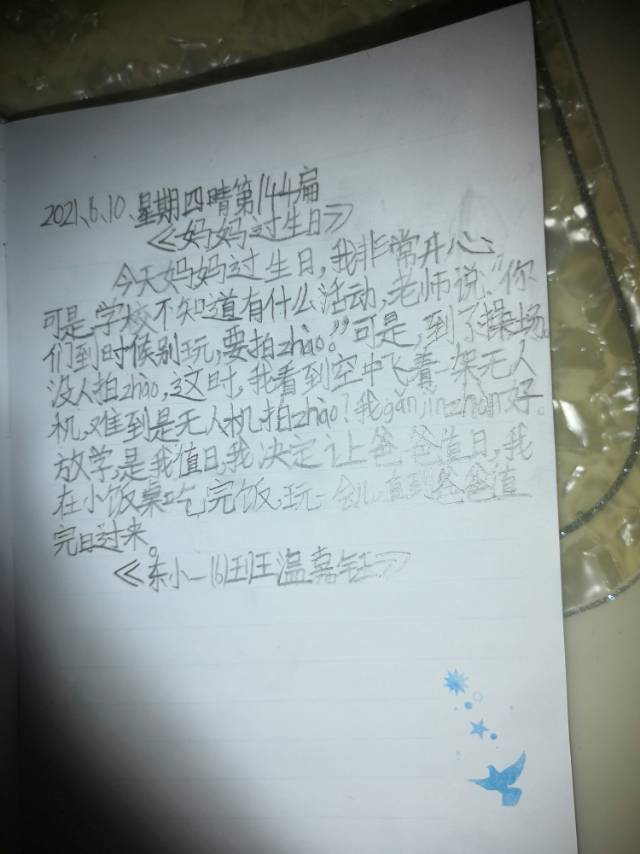 2021、6、10、星期四晴第144扁
《妈妈过生日》
今天妈妈过生日,我非常开心、
可是,学校不知道有什么活动,老师说:“你
们到时候别玩,要拍zhào。”可是,到了操场。
没人拍zhào,这时,我看到空中飞着一架无人
机,难到是无人机拍zhào?我gǎnjǐnzhàn好。
放学,是我值日,我决定让爸爸值日,我
在小饭桌吃完饭,玩一会儿,直到爸爸值
完日过来。
《东小一(6)班温嘉钰》